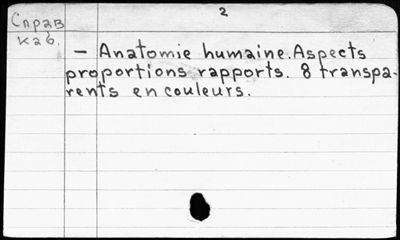 2
Справ
каб.
— Anatomie humaine. Aspects
proportions rapports. 8 transpa-
rents en couleurs.